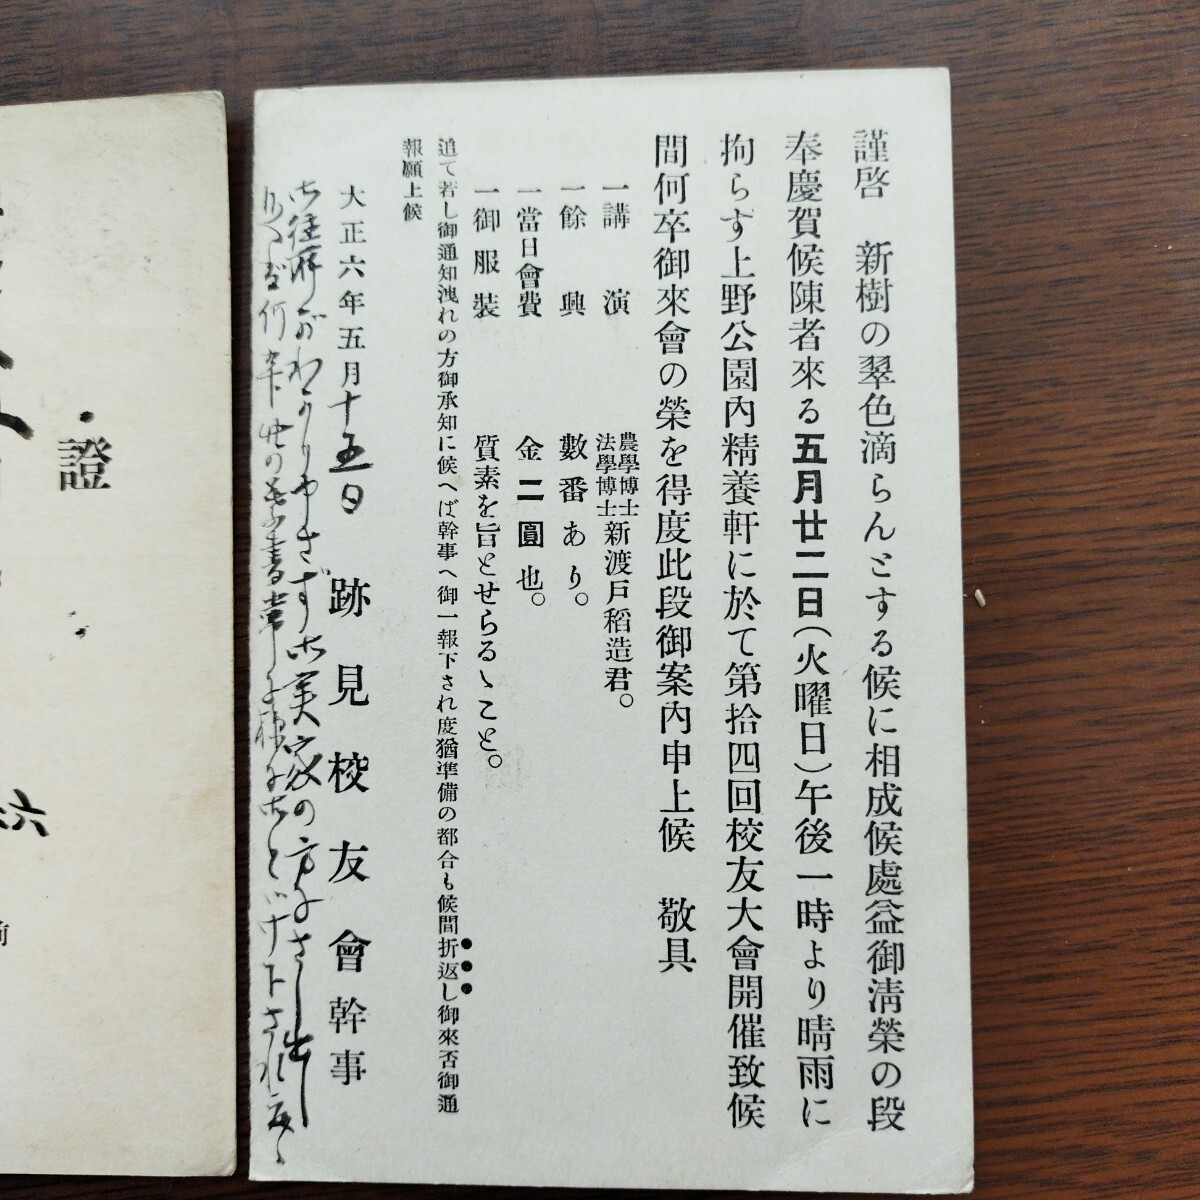 謹啓　新樹の翠色滴らんとする候に相成候處益御淸榮の段
奉慶賀候陳者來る五月廿二日(火曜日)午後一時より晴雨に
拘らす上野公園內精養軒に於て第拾四回校友大會開催致候
間何卒御來會の榮を得度此段御案內申上候　敬具
一講演　農學博士法學博士新渡戸稻造君。
一餘興　數番あり。
一當日會費　金二圓也。
一御服裝　質素を旨とせらるゝこと。
追て若し御通知洩れの方御承知に候へば幹事へ御一報下され度猶準備の都合も候間折返し御來否御通
報願上候
大正六年五月十五日　跡見校友會幹事
御住所がわかりやさず御実家の方にさし出し
何卒此の葉書
證
六